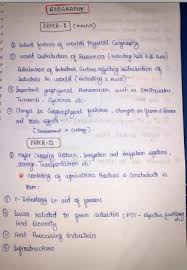 GEOGRAPHY
PAPER-I (MAINS)
① Salient features of world's Physical Geography
② World Distribution of Resources (including India & S. Asia)
Distribution of Industries, Factors regarding distribution of
Industries in world (including India)
③ Important geophysical Phenomena such as (earthquakes
Tsunamis, Cyclones etc.
④ Changes in Geographical features - changes in flora & fauna
and their effects
PAPER-III
① Major Cropping Pattern, Irrigation and Irrigation systems,
storage, Transportation etc
marketing of agriculture Produce & Constraints in
them.
② E-Technology in aid of farmers
③ Issues related to farm subsidies; PDS - objective
food security
④ Food Processing Industries
⑤ Infrastructure